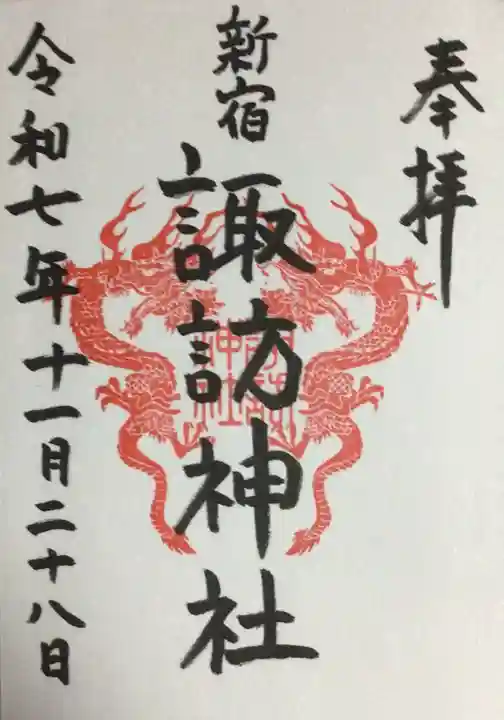 奉拝
新宿
諏訪神社
諏訪
神社
令和七年十一月二十八日